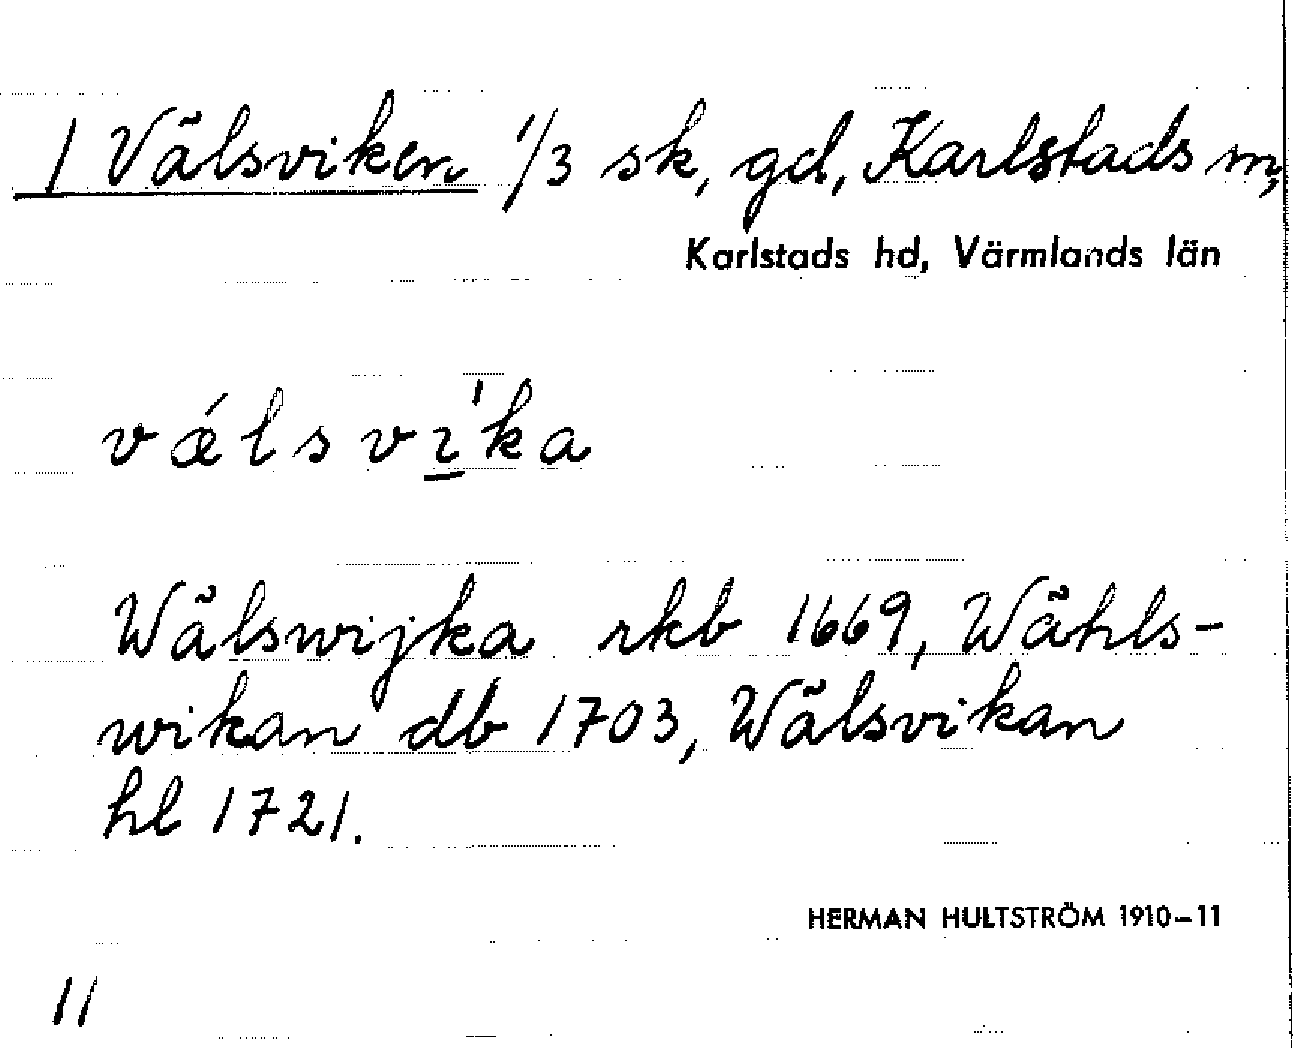 1 Välsviken 1/3 sk, gd, Karlstads m,
Karlstads hd, Värmlands län
vǽlsvı̲́ka
Wälswijka rkb 1669, Wähls-
wikan db 1703, Wälsvikan
hl 1721.
HERMAN HULTSTRÖM 1910–11
11